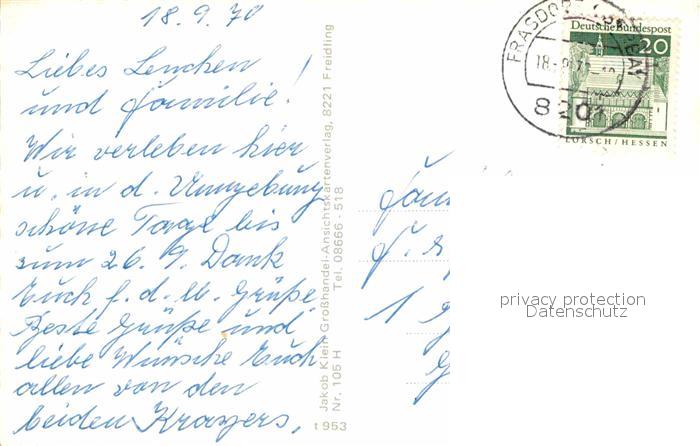 18.9.70
Liebes Lenchen
und Familie!
Wir verleben hier
u. in d. Umgebung
schöne Tage bis
zum 26. 9. Dank
Euch f. d. lb. Grüße.
Beste Grüße und
liebe Wünsche Euch
allen von den
beiden Krayers.
Jakob Klein Großhandel-Ansichtskartenverlag, 8221 Freidling
Nr. 105 H Tel. 08666 - 518
t 953
Fam
F.
1
FRASDORF
18.-9.70
8201
Deutsche Bundespost
20
LORSCH/HESSEN
privacy protection
Datenschutz